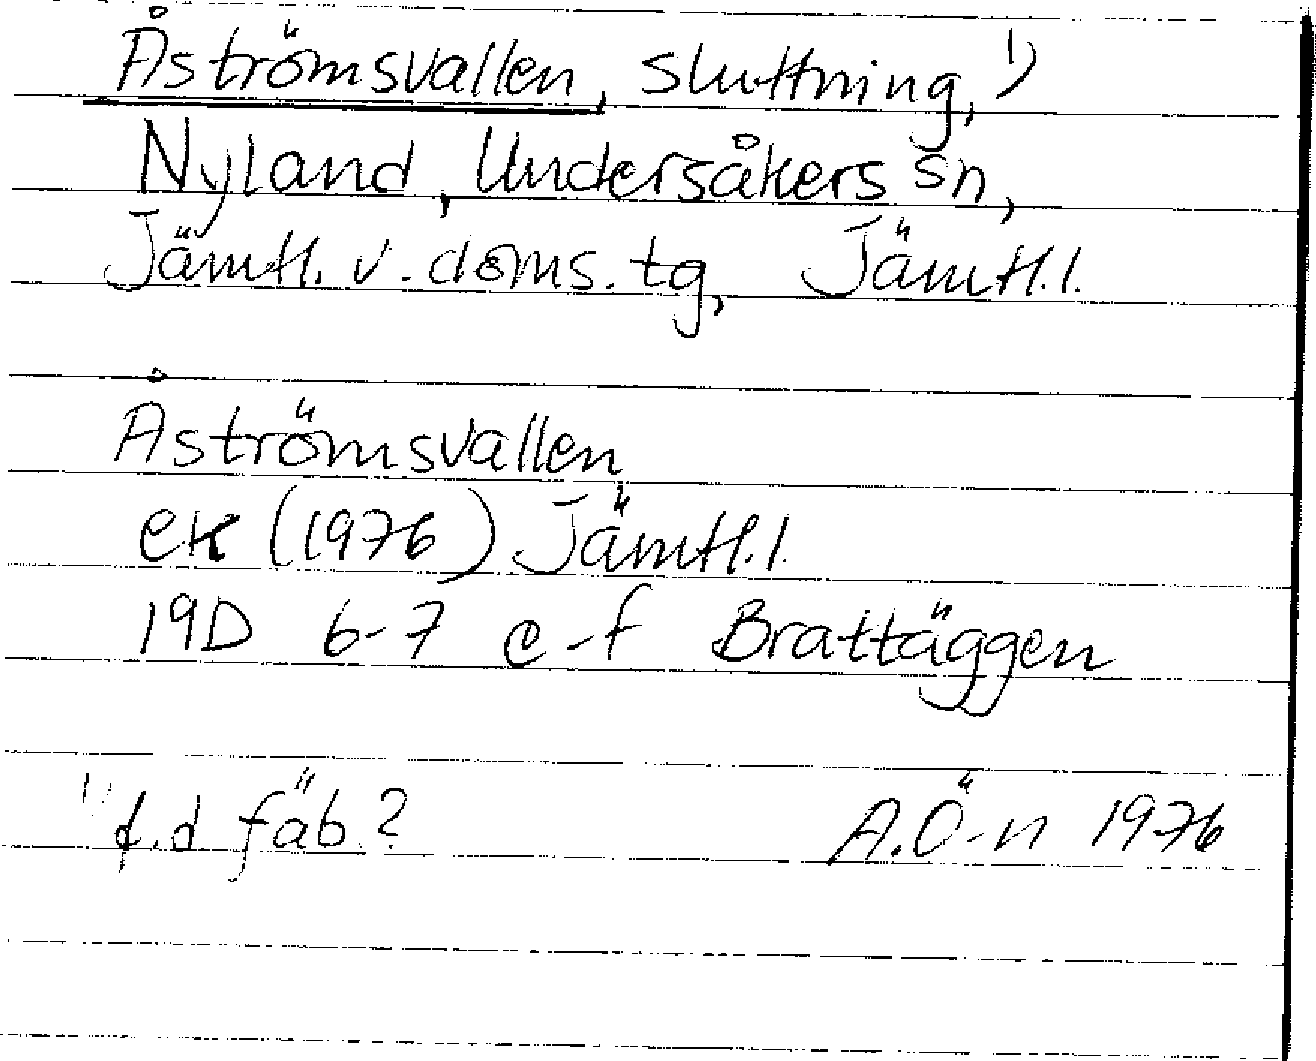 Åströmsvallen, sluttning, 1)
Nyland, Undersåkers sn,
Jämtl. v. doms. tg, Jämtl. l.
Åströmsvallen
ek (1976) Jämtl. l.
19D 6-7 e-f Brattäggen
1) f.d fäb.?
A.Ö-n 1976